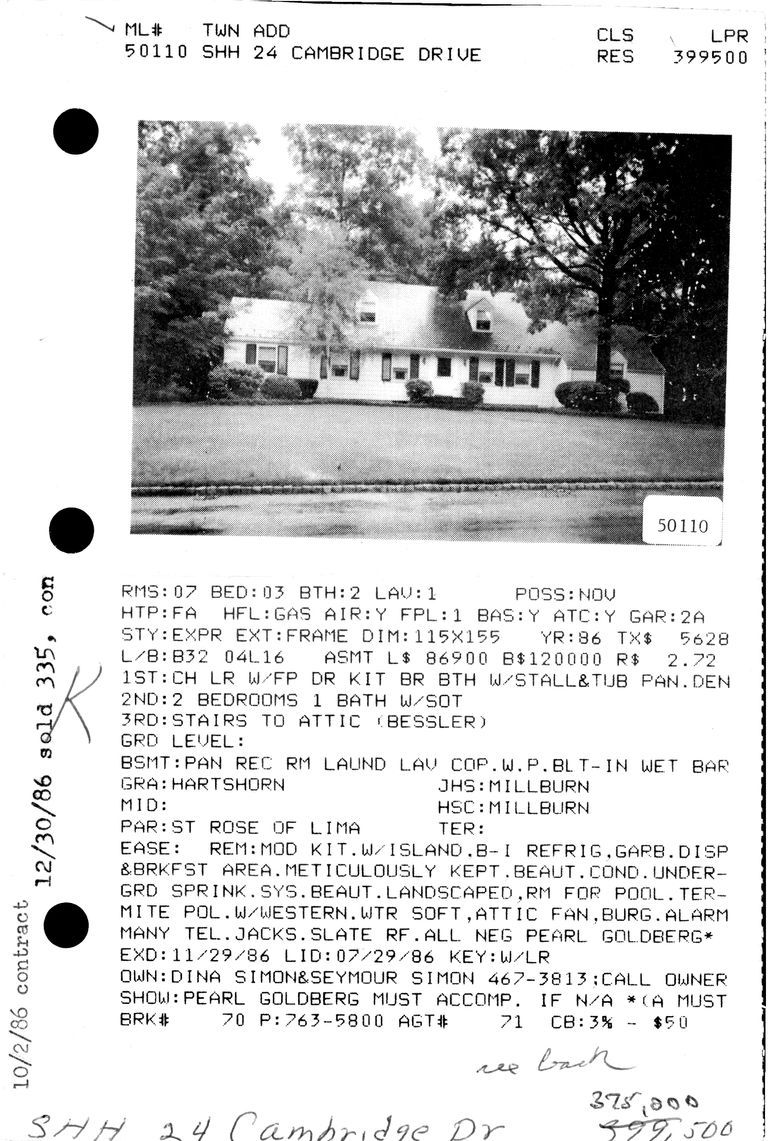 ML# TWN ADD CLS LPR
50110 SHH 24 CAMBRIDGE DRIVE RES 399500
50110
RMS:07 BED:03 BTH:2 LAV:1 POSS:NOV
HTP:FA HFL:GAS AIR:Y FPL:1 BAS:Y ATC:Y GAR:2A
STY:EXPR EXT:FRAME DIM:115X155 YR:86 TX$ 5628
L/B:B32 04L16 ASMT L$ 86900 B$120000 R$ 2.72
1ST:CH LR W/FP DR KIT BR BTH W/STALL&TUB PAN.DEN
2ND:2 BEDROOMS 1 BATH W/SOT
3RD:STAIRS TO ATTIC (BESSLER)
GRD LEVEL:
BSMT:PAN REC RM LAUND LAV COP.W.P.BLT-IN WET BAR
GRA:HARTSHORN JHS:MILLBURN
MID: HSC:MILLBURN
PAR:ST ROSE OF LIMA TER:
EASE: REM:MOD KIT.W/ISLAND.B-I REFRIG,GARB.DISP
&BRKFST AREA.METICULOUSLY KEPT.BEAUT.COND.UNDER-
GRD SPRINK.SYS.BEAUT.LANDSCAPED,RM FOR POOL.TER-
MITE POL.W/WESTERN.WTR SOFT,ATTIC FAN,BURG.ALARM
MANY TEL.JACKS.SLATE RF.ALL NEG PEARL GOLDBERG*
EXD:11/29/86 LID:07/29/86 KEY:W/LR
OWN:DINA SIMON&SEYMOUR SIMON 467-3813;CALL OWNER
SHOW:PEARL GOLDBERG MUST ACCOMP. IF N/A *(A MUST
BRK# 70 P:763-5800 AGT# 71 CB:3% - $50
see back
375,000
399,500
SHH 24 Cambridge Dr
10/2/86 contract
12/30/86 sold 335, con
K